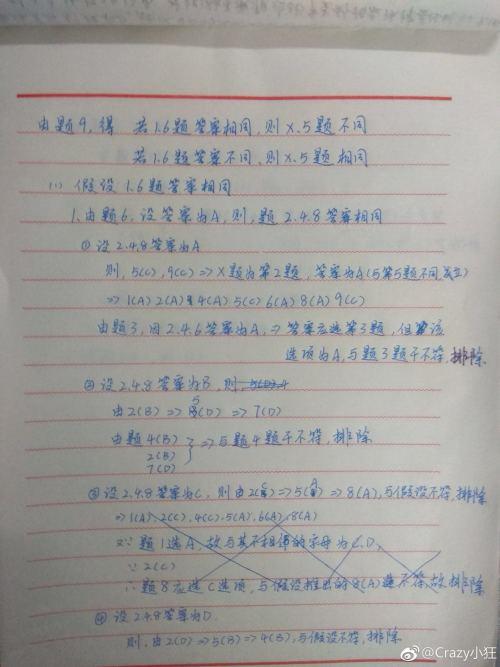 由题9,得 若1.6题答案相同,则X.5题不同
若1.6题答案不同,则X.5题相同
(1) 假设1.6题答案相同
1.由题6,设答案为A,则,题2.4.8答案相同
① 设2.4.8答案为A
则,5(C),9(C)=>X题为第2题,答案为A(与第5题不同,成立)
=>1(A)2(A)4(A)5(C)6(A)8(A)9(C)
由题3,因2.4.6答案为A,=>答案应选第3题,但该
选项为A,与题3题干不符,排除
② 设2.4.8答案为B,则,
由2(B)=>5(D)=>7(D)
由题4(B)
2(B)
7(D)
=>与题4题干不符,排除
③设2.4.8答案为C,则由2(C)=>5(A)=>8(A),与假设不符,排除
=>1(A),2(C),4(C).5(A),6(A),8(A)
又∵题1选A,故与其不相邻的字母为C.D,
∵2(C)
∴题8应选C选项,与假设推出的8(A)不符,故排除
④ 设2.4.8答案为D
则,由2(D)=>5(B)=>4(B),与假设不符,排除
@Crazy小狂